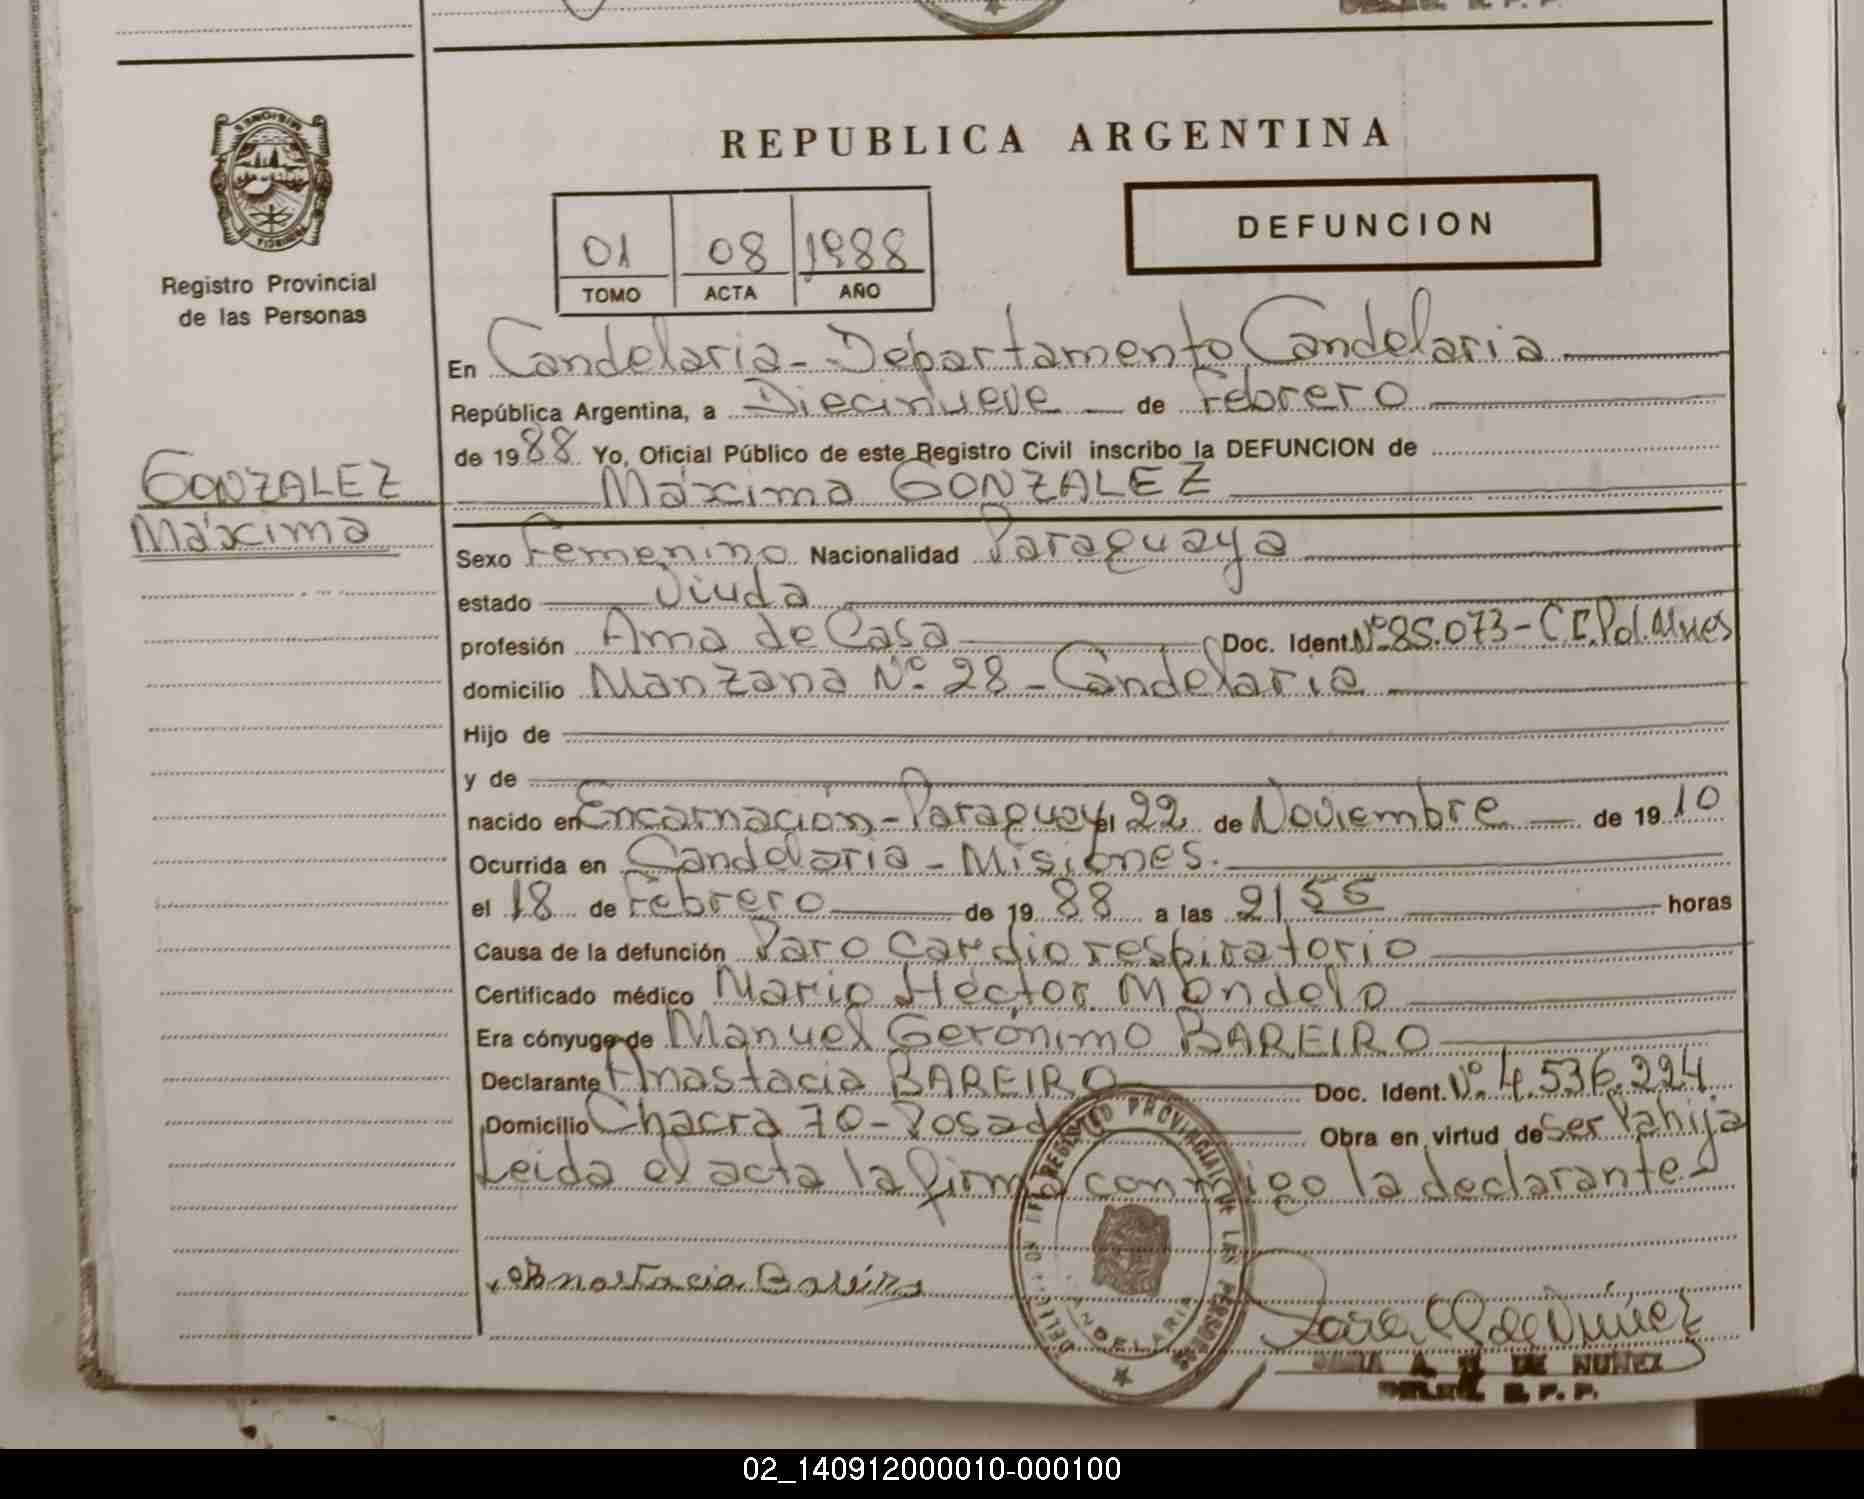 REPUBLICA ARGENTINA
MISIONES
PROVINCIA
Registro Provincial
de las Personas
01 08 1988
TOMO ACTA AÑO
DEFUNCION
En Candelaria - Departamento Candelaria
República Argentina, a Diecinueve de Febrero
de 1988 Yo, Oficial Público de este Registro Civil inscribo la DEFUNCION de
GONZALEZ
Máxima
Máxima GONZALEZ
Sexo Femenino Nacionalidad Paraguaya
estado Viuda
profesión Ama de Casa Doc. Ident. Nº 85.073 - C.I. Pol. Mnes
domicilio Manzana Nº 28 - Candelaria
Hijo de
y de
nacido en Encarnación - Paraguay el 22 de Noviembre de 1910
Ocurrida en Candelaria - Misiones.
el 18 de Febrero de 1988 a las 21 55 horas
Causa de la defunción Paro Cardiorespiratorio
Certificado médico Mario Héctor Mondelo
Era cónyuge de Manuel Gerónimo BAREIRO
Declarante Anastacia BAREIRO Doc. Ident. Nº 4.536.224
Domicilio Chacra 70 - Posad Obra en virtud de ser la hija
Leida el acta la firma conmigo la declarante
Anastacia Bareiro
REGISTRO PROVINCIAL DE LAS PERSONAS
CANDELARIA
A. DE NUÑEZ
R. P. P.
02_140912000010-000100